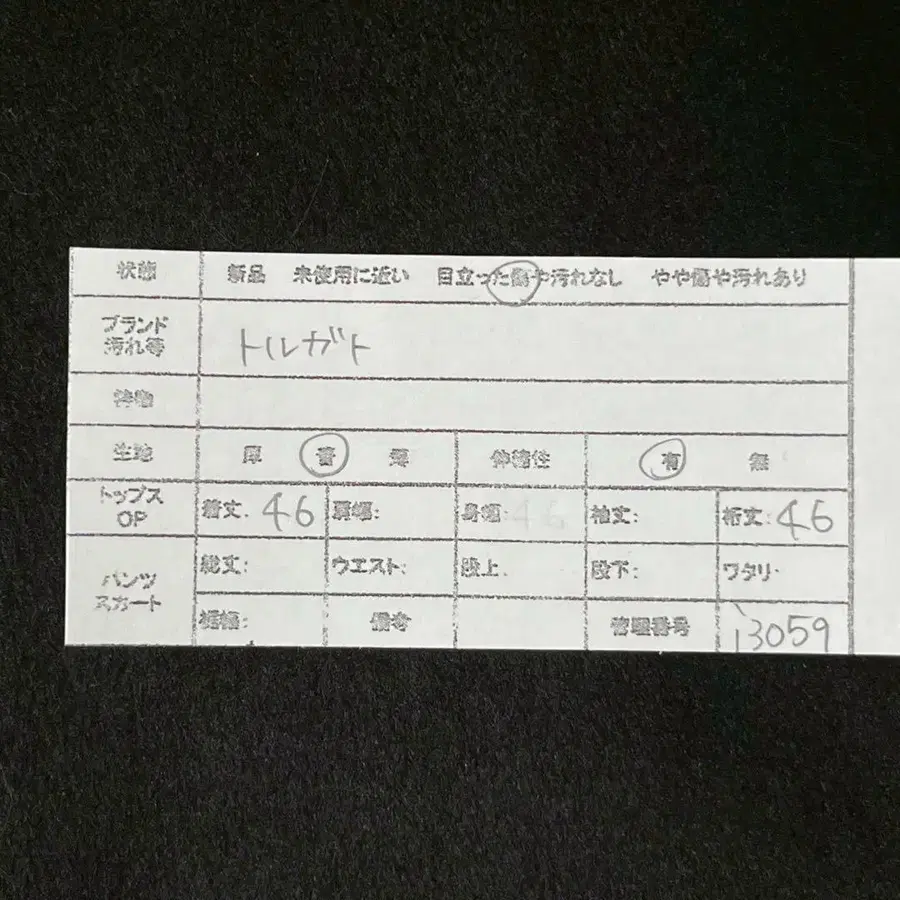 状態 新品 未使用に近い 目立った傷や汚れなし やや傷や汚れあり
ブランド
汚れ等 トルガト
生地 厚 普 薄 伸縮性 有 無
トップス
OP 着丈: 46 肩幅: 身幅: 46 袖丈: 裄丈: 46
パンツ
スカート 総丈: ウエスト: 股上: 股下: ワタリ:
裾幅: 備考 管理番号 13059